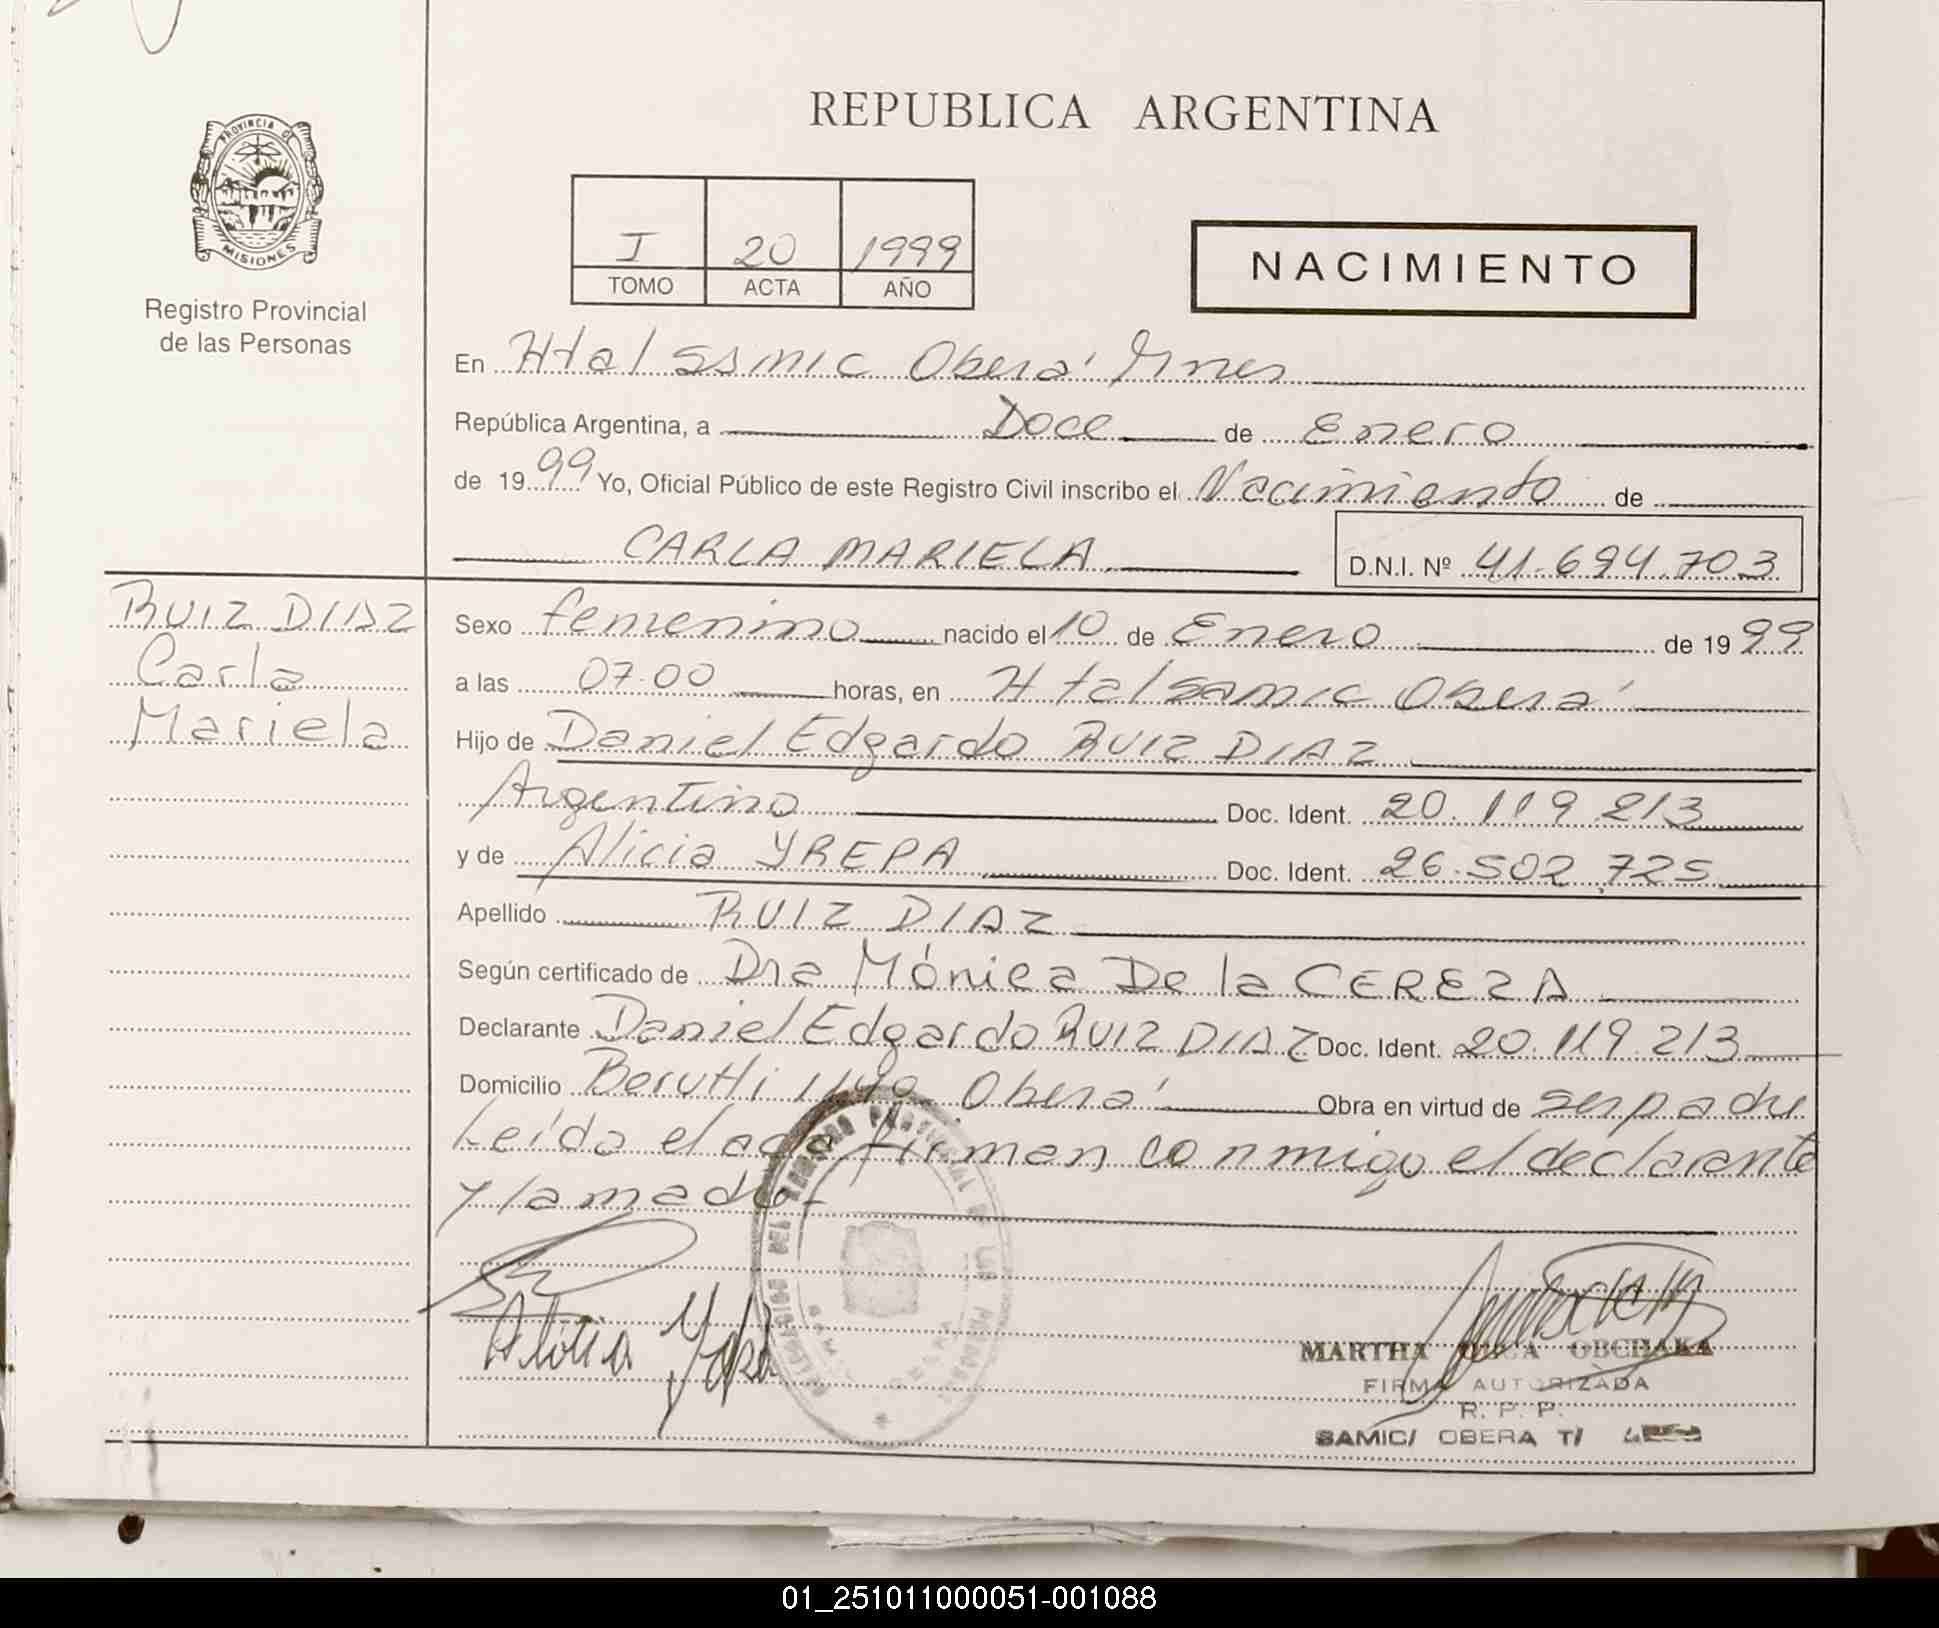 REPUBLICA ARGENTINA
PROVINCIA D
MISIONES
Registro Provincial
de las Personas
I 20 1999
TOMO ACTA AÑO
NACIMIENTO
En Htal ssmic Oberá Mnes
República Argentina, a Doce de Enero
de 1999 Yo, Oficial Público de este Registro Civil inscribo el Nacimiento de
CARLA MARIELA
D.N.I. Nº 41.694.703
RUIZ DIAZ
Carla
Mariela
Sexo femenino nacido el 10 de Enero de 1999
a las 07.00 horas, en Htal samic Oberá
Hijo de Daniel Edgardo RUIZ DIAZ
Argentino Doc. Ident. 20.119.213
y de Alicia YREPA Doc. Ident. 26.502.725
Apellido RUIZ DIAZ
Según certificado de Dra Mónica De la CEREZA
Declarante Daniel Edgardo RUIZ DIAZ Doc. Ident. 20.119.213
Domicilio Berutti Oberá Obra en virtud de ser padre
Leído el acta firman conmigo el declarante
y la madre
Alicia
MARTHA OBCHAKA
FIRMA AUTORIZADA
R. P. P.
SAMIC/ OBERA T/
01_251011000051-001088